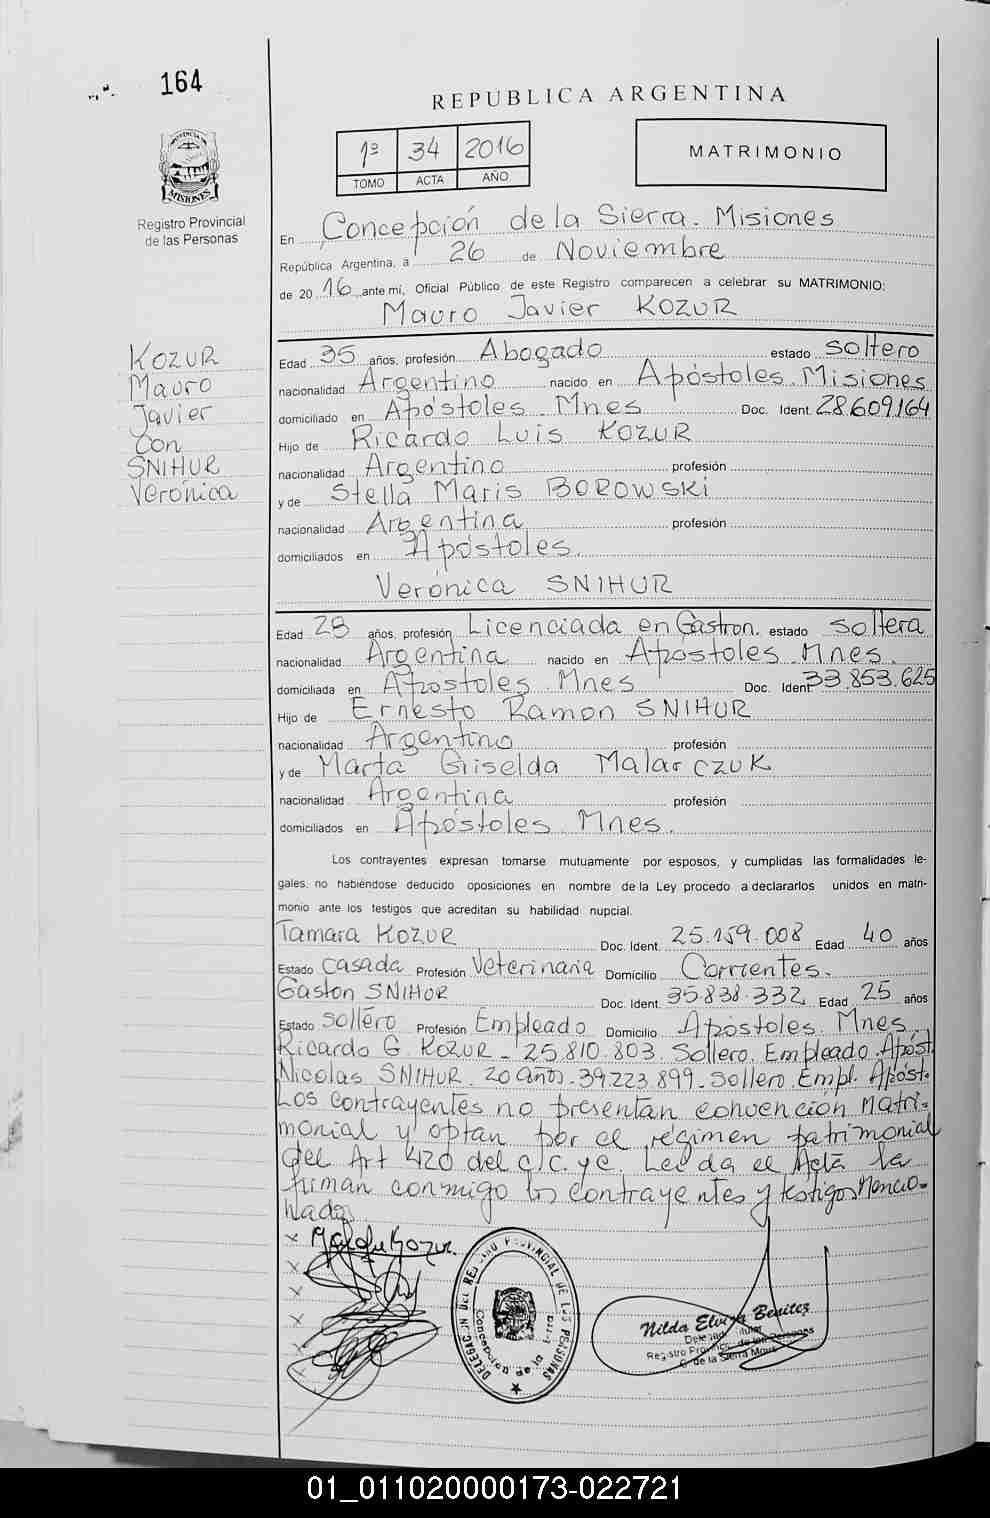 164
REPUBLICA ARGENTINA
1º 34 2016
TOMO ACTA AÑO
MATRIMONIO
PROVINCIA DE
MISIONES
Registro Provincial
de las Personas
En Concepción de la Sierra. Misiones
República Argentina, a 26 de Noviembre
de 2016 ante mi, Oficial Público de este Registro comparecen a celebrar su MATRIMONIO:
Mauro Javier KOZUR
KOZUR
Mauro
Javier
Con
SNIHUR
Verónica
Edad 35 años, profesión Abogado estado soltero
nacionalidad Argentino nacido en Apóstoles. Misiones
domiciliado en Apóstoles. Mnes Doc. Ident. 28.609.164
Hijo de Ricardo Luis KOZUR
nacionalidad Argentino profesión
y de Stella Maris BOROWSKI
nacionalidad Argentina profesión
domiciliados en Apóstoles.
Verónica SNIHUR
Edad 28 años, profesión Licenciada en Gastron. estado soltera
nacionalidad Argentina nacido en Apóstoles. Mnes.
domiciliada en Apóstoles. Mnes Doc. Ident. 33.853.625
Hijo de Ernesto Ramon SNIHUR
nacionalidad Argentino profesión
y de Marta Griselda Malarczuk
nacionalidad Argentina profesión
domiciliados en Apóstoles. Mnes.
Los contrayentes expresan tomarse mutuamente por esposos, y cumplidas las formalidades le-
gales, no habiéndose deducido oposiciones en nombre de la Ley procedo a declararlos unidos en matri-
monio ante los testigos que acreditan su habilidad nupcial.
Tamara KOZUR Doc. Ident. 25.159.008 Edad 40 años
Estado casada Profesión Veterinaria Domicilio Corrientes.
Gaston SNIHUR Doc. Ident. 35.838.332 Edad 25 años
Estado soltero Profesión Empleado Domicilio Apóstoles. Mnes.
Ricardo G. KOZUR - 25.810.803. Soltero. Empleado. Apóst.
Nicolas SNIHUR. 20 años. 39.223.899. Soltero. Empl. Apóst.
Los contrayentes no presentan convencion Matri-
monial y optan por el régimen patrimonial
del Art 420 del c/c. y c. Leída el Acta la
firman conmigo los contrayentes y testigos Mencio-
nados
DELEGACION DEL REGISTRO PROVINCIAL DE LAS PERSONAS
Concepcion de la Sierra
Nilda Elvira Benitez
Registro Provincial de las Personas
C. de la Sierra
01_011020000173-022721